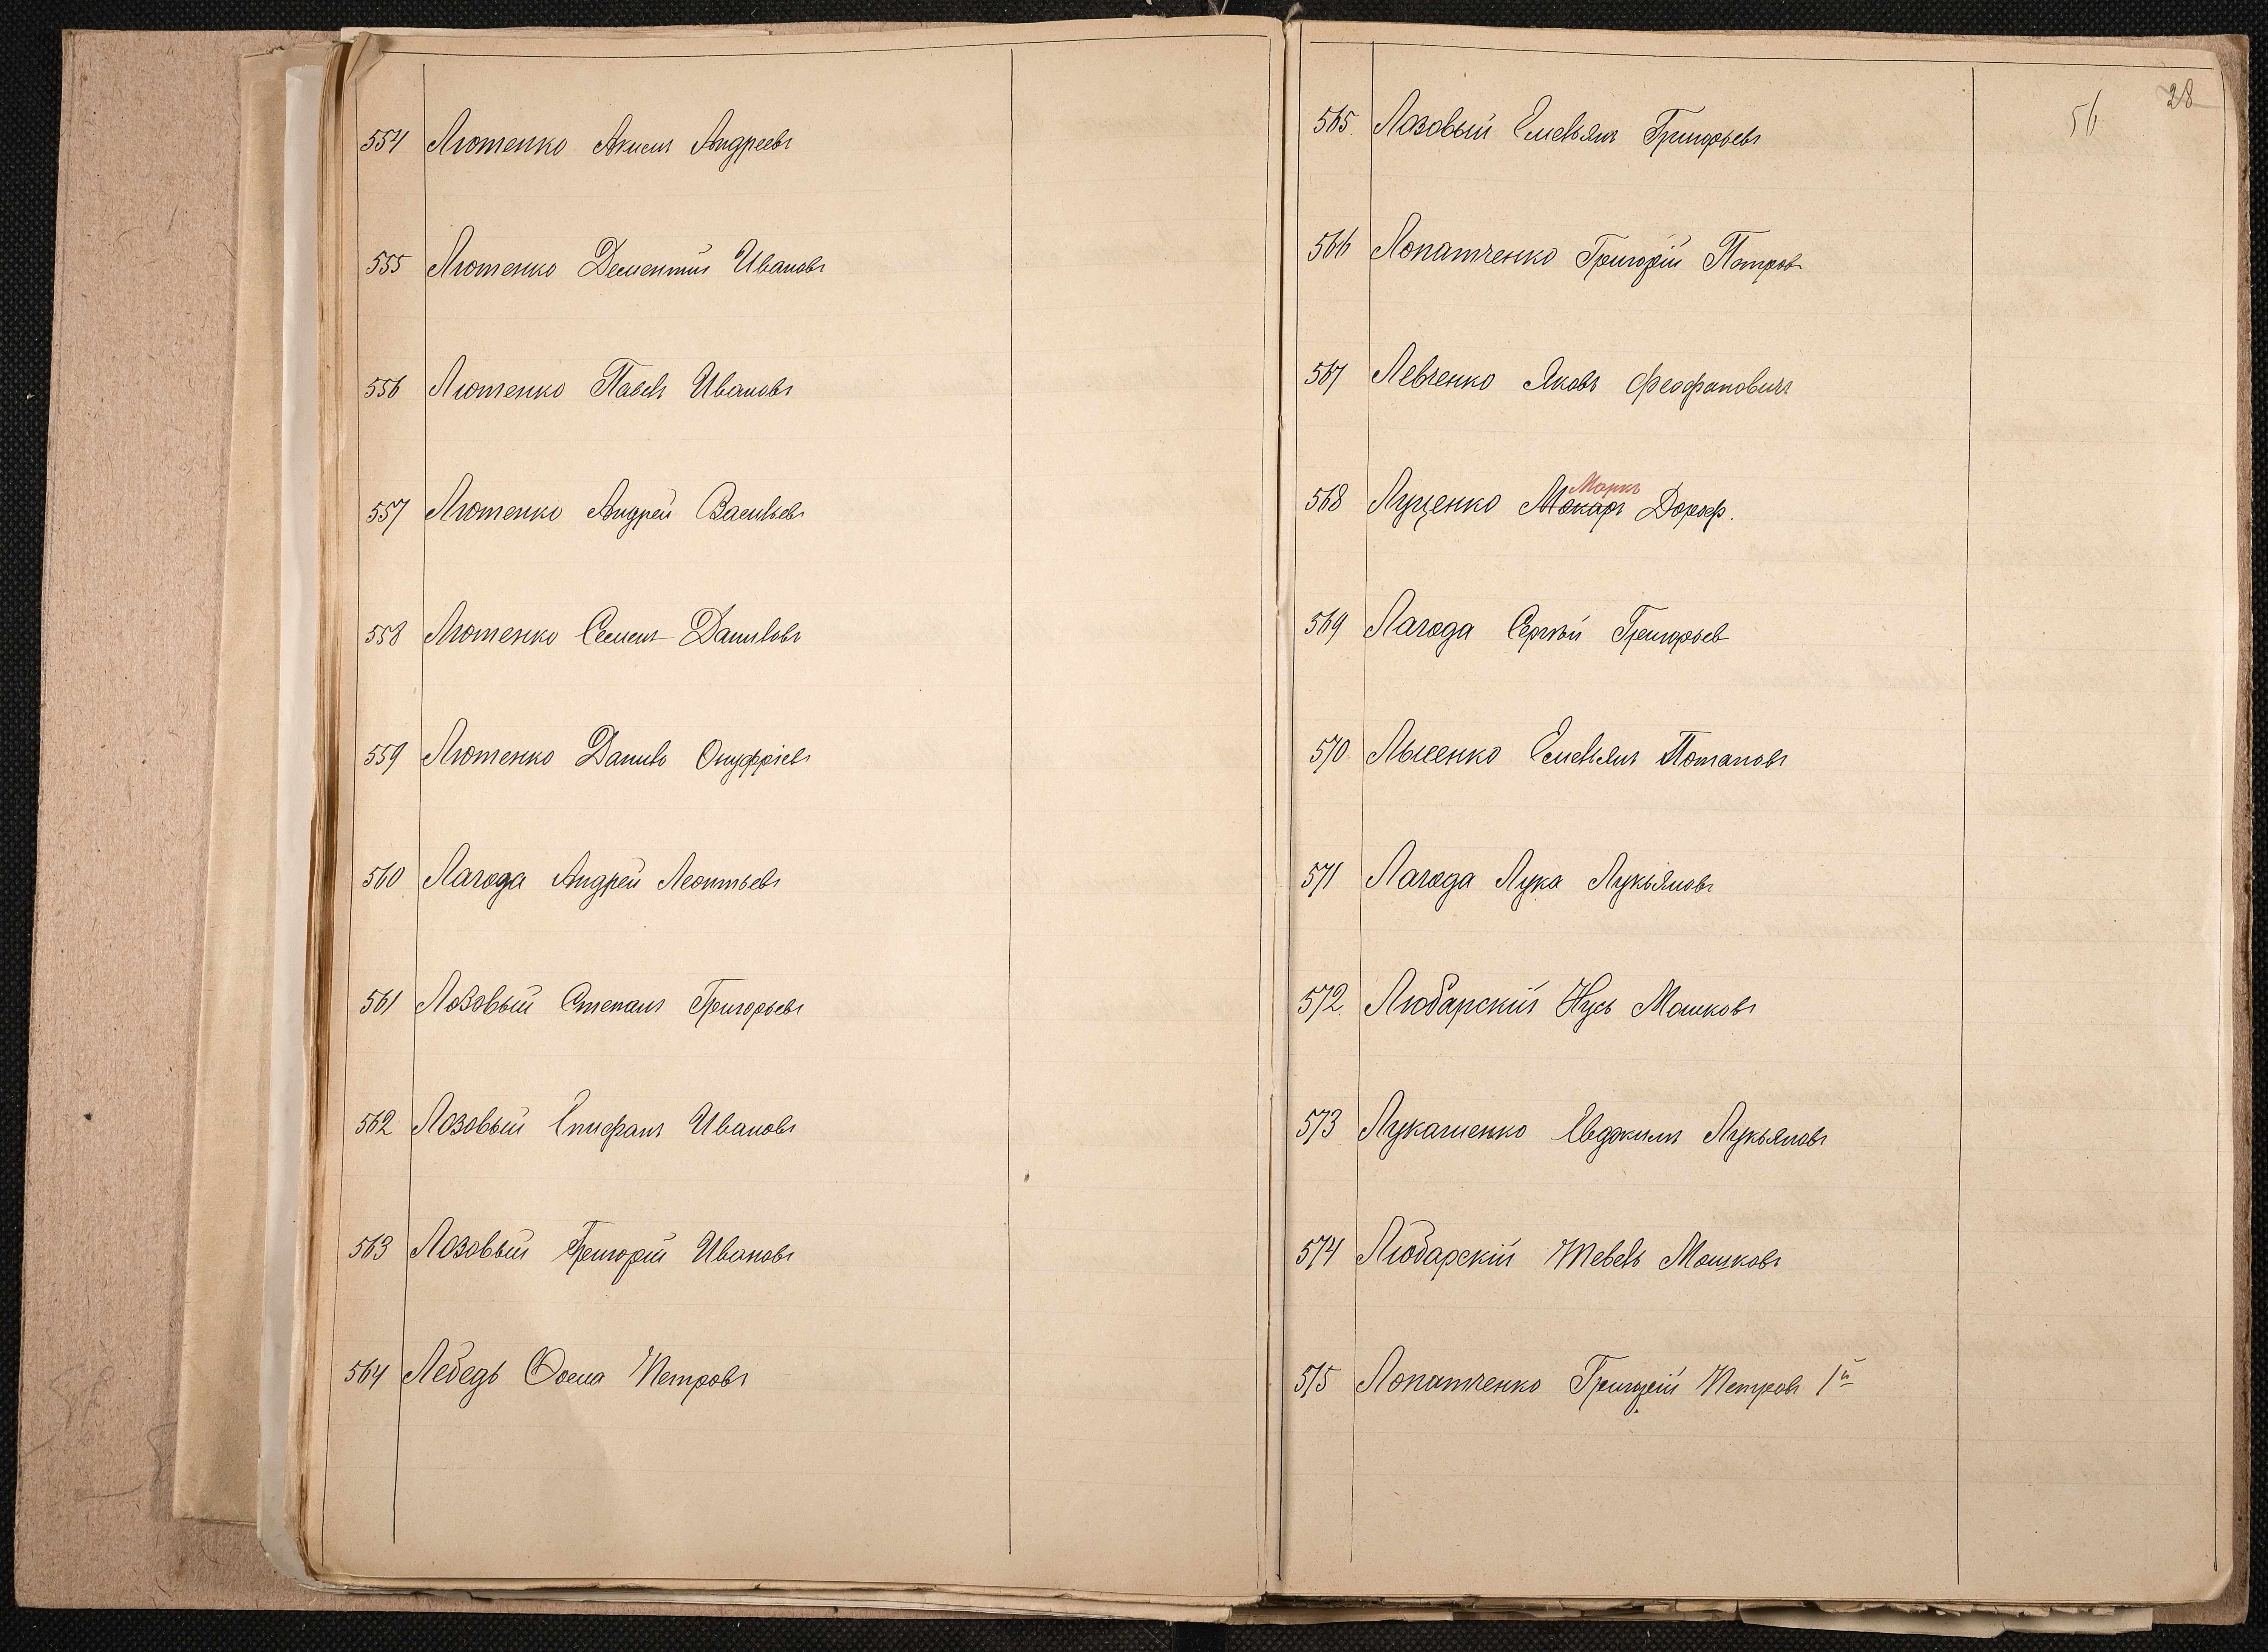 554 Лютенко Акимъ Андреевъ
555 Лютенко Дементий Ивановъ
556 Лютенко Павелъ Ивановъ
557 Лютенко Андрей Васильевъ
558 Лютенко Семенъ Даниловъ
559 Лютенко Данило Онуфріевъ
560 Лагода Андрей Леонтьевъ
561 Лозовый Степанъ Григорьевъ
562 Лозовый Епифанъ Ивановъ
563 Лозовый Григорій Ивановъ
564 Лебедь Фома Петровъ
28
56
565. Лозовый Емельянъ Григорьевъ
566 Лопатченко Григорій Петровъ
567 Левченко Яковъ Феофановичъ
Маркъ
568 Луценко Макаръ Дороф.
569 Лагода Сергѣй Григорьев
570 Лысенко Емельянъ Потаповъ
571 Лагода Лука Лукьяновъ
572. Любарскій Нусь Мошковъ
573 Лукашенко Евдокимъ Лукьяновъ
574 Любарскій Шевель Мошковъ
575 Лопатченко Григорій Петровъ 1й